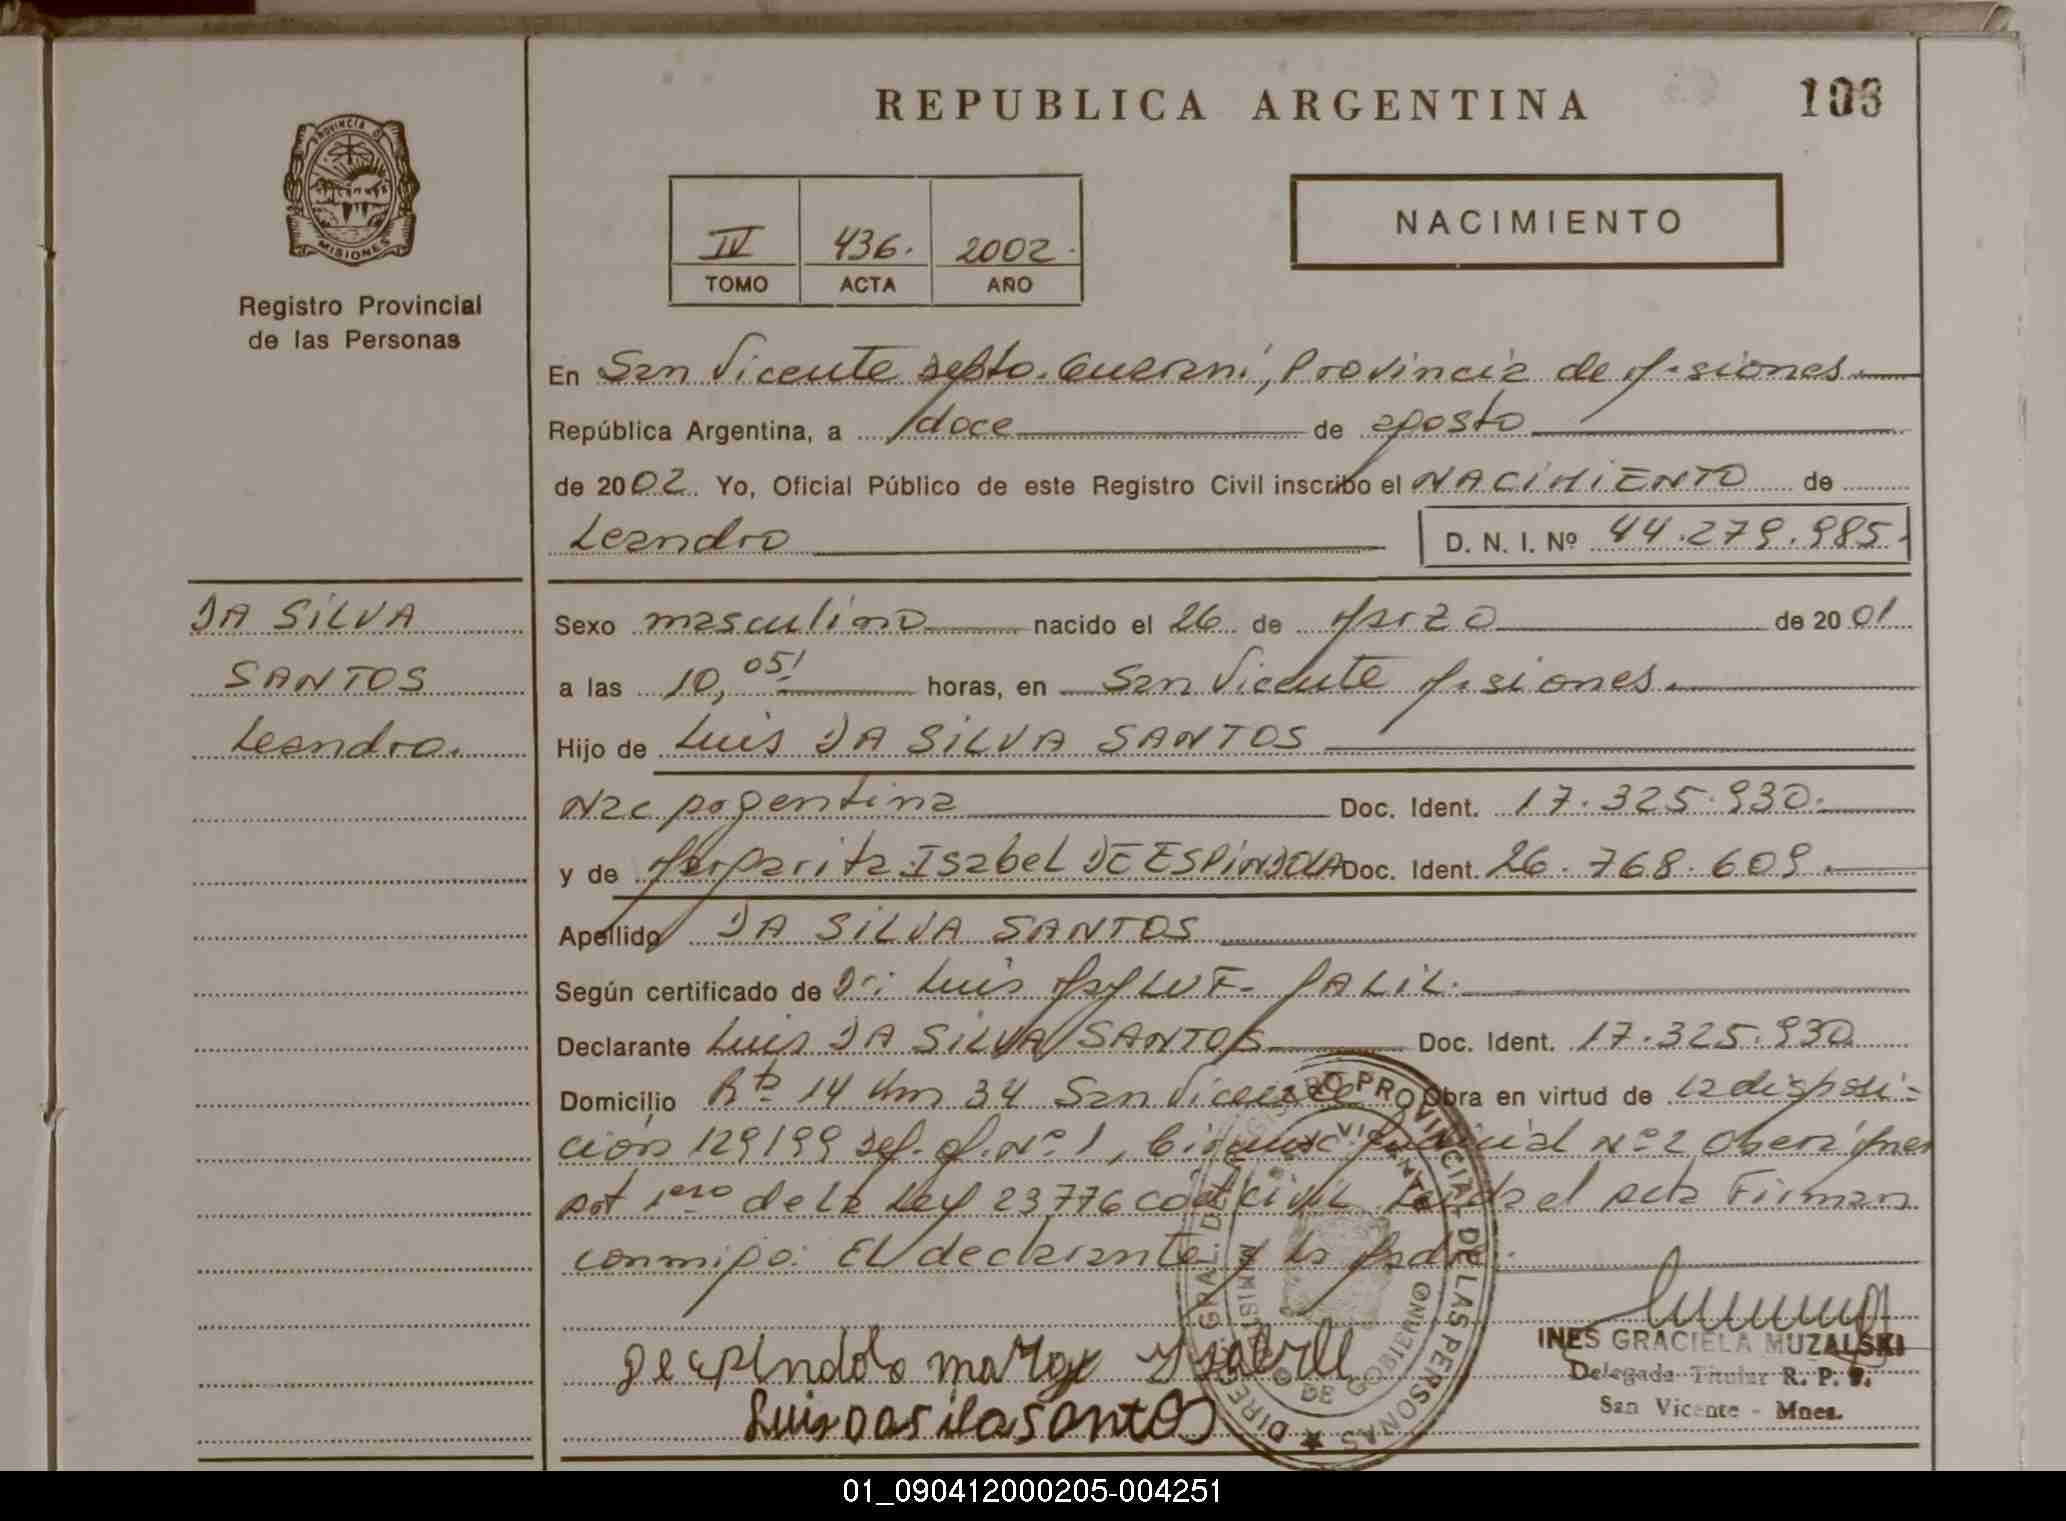 REPUBLICA ARGENTINA
103
PROVINCIA DE MISIONES
Registro Provincial
de las Personas
IV 436. 2002.
TOMO ACTA AÑO
NACIMIENTO
En San Vicente Depto. Guaraní, Provincia de Misiones.
República Argentina, a doce de agosto
de 2002. Yo, Oficial Público de este Registro Civil inscribo el NACIMIENTO de
Leandro D. N. I. Nº 44.279.985.
DA SILVA
SANTOS
Leandro.
Sexo masculino nacido el 26 de Marzo de 2001
a las 10,05' horas, en San Vicente Misiones.
Hijo de Luis DA SILVA SANTOS
Nac Argentina Doc. Ident. 17.325.930.
y de Margarita Isabel DE ESPINDOLA Doc. Ident. 26.768.609.
Apellido DA SILVA SANTOS
Según certificado de Dr: Luis
Declarante Luis DA SILVA SANTOS Doc. Ident. 17.325.930.
Domicilio Rta 14 Km 34 San Vicente Obra en virtud de la disposi-
ción 129/99 Nº 1, Judicial Nº 2 Oberá Mnes
Art 1ero de la Ley 23776 Leída el acta Firman
conmigo: El declarante y la Madre.
de espindola marga ysabel
Luis da sila santos
DIREC. GRAL. DEL REGISTRO PROVINCIAL DE LAS PERSONAS
MINISTERIO DE GOBIERNO
SAN VICENTE
INES GRACIELA MUZALSKI
Delegada Titular R. P. P.
San Vicente - Mnes.
01_090412000205-004251